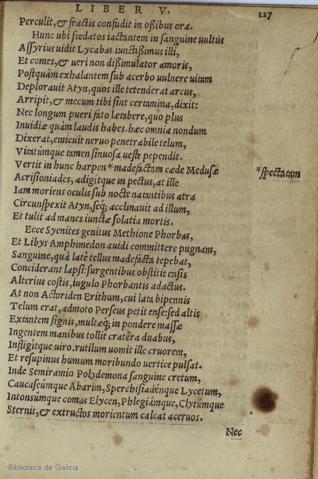 LIBER V. 127
Perculit, & fractis confudit in ossibus ora.
Hunc ubi fœdatos iactantem in sanguine uultus
Assyrius uidit Lycabas iunctissimus illi,
Et comes, & ueri non dissimulator amoris,
Postquàm exhalantem sub acerbo uulnere uitam
Deplorauit Atyn, quos ille tetenderat arcus,
Arripit, & mecum tibi sint certamina, dixit:
Nec longum pueri fato lætabere, quo plus
Inuidiæ quàm laudis habes. hæc omnia nondum
Dixerat, emicuit neruo penetrabile telum,
Vitatúmque tamen sinuosa ueste pependit.
Vertit in hunc harpen * madefactam cæde Medusæ
* spectatam
Acrisioniades, adigitque in pectus, at ille
Iam moriens oculis sub nocte natantibus atra
Circunspexit Atyn, seq; acclinauit ad illum,
Et tulit ad manes iunctæ solatia mortis.
Ecce Syenites genitus Methione Phorbas,
Et Libys Amphimedon auidi committere pugnam,
Sanguine, quà latè tellus madefacta tepebat,
Conciderant lapsi: surgentibus obstitit ensis
Alterius costis, iugulo Phorbantis adactus.
At non Actoriden Erithum, cui lata bipennis
Telum erat, admoto Perseus petit ense: sed altis
Extantem signis, multæq; in pondere massæ
Ingentem manibus tollit cratêra duabus,
Infligitque uiro. rutilum uomit ille cruorem,
Et resupinus humum moribundo uertice pulsat.
Inde Semiramio Polydemona sanguine cretum,
Caucaseúmque Abarim, Sperchisiadénque Lycetum,
Intonsúmque comas Elycen, Phlegiámque, Clytúmque
Sternit, & extructos morientum calcat aceruos.
Nec
Biblioteca de Galicia